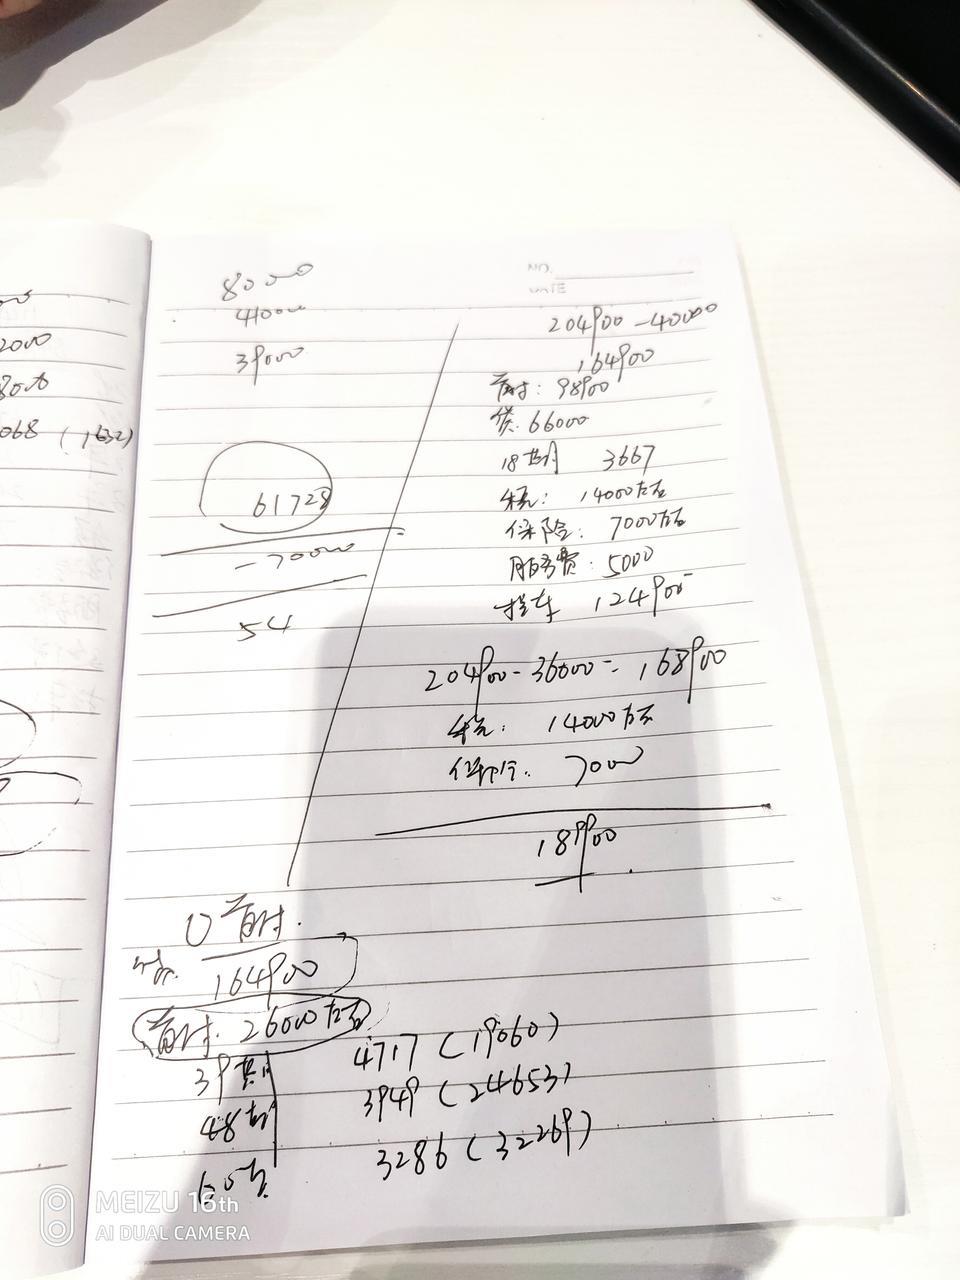 2000
068 (1632)
80000
41000
39000
61728
-70000
54
NO.
DATE
204900-40000
164900
首付: 98900
贷: 66000
18期 3667
税: 14000左右
保险: 7000左右
服务费: 5000
提车 124900
204900-36000=168900
税: 14000左右
保险: 7000
189900
0首付.
164900
首付. 26000左右
39期 4717 (19060)
48期 3949 (24653)
60期 3286 (32269)
MEIZU 16th
AI DUAL CAMERA